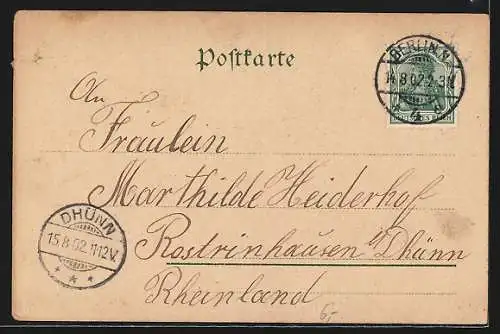 Postkarte
BERLIN
14.8.02.2-3N.
An
Fräulein
Marthilde Heiderhof
DHÜNN
15.8.02.11-12V.
Rostrinhausen b/Dhünn
Rheinland